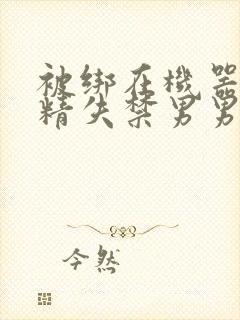 被绑在机器
精失禁男男
今然